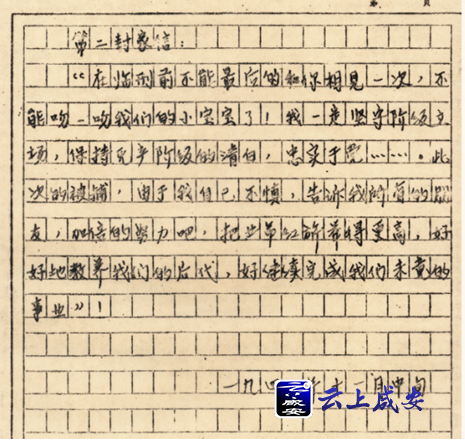 第 页
第二封家信：
“在临刑前不能最后的和你相見一次，不
能吻一吻我们的小宝宝了！我一定坚守阶级立
场，保持无产阶级的清白，忠实于党……。此
次的被捕，由于我自己不慎，告诉我所有的朋
友，加倍的努力吧，把革命红旗举得更高，好
好地教养我们的后代，好继续完成我们未竟的
事业”！
一九四 十一月中旬
咸安 云上咸安